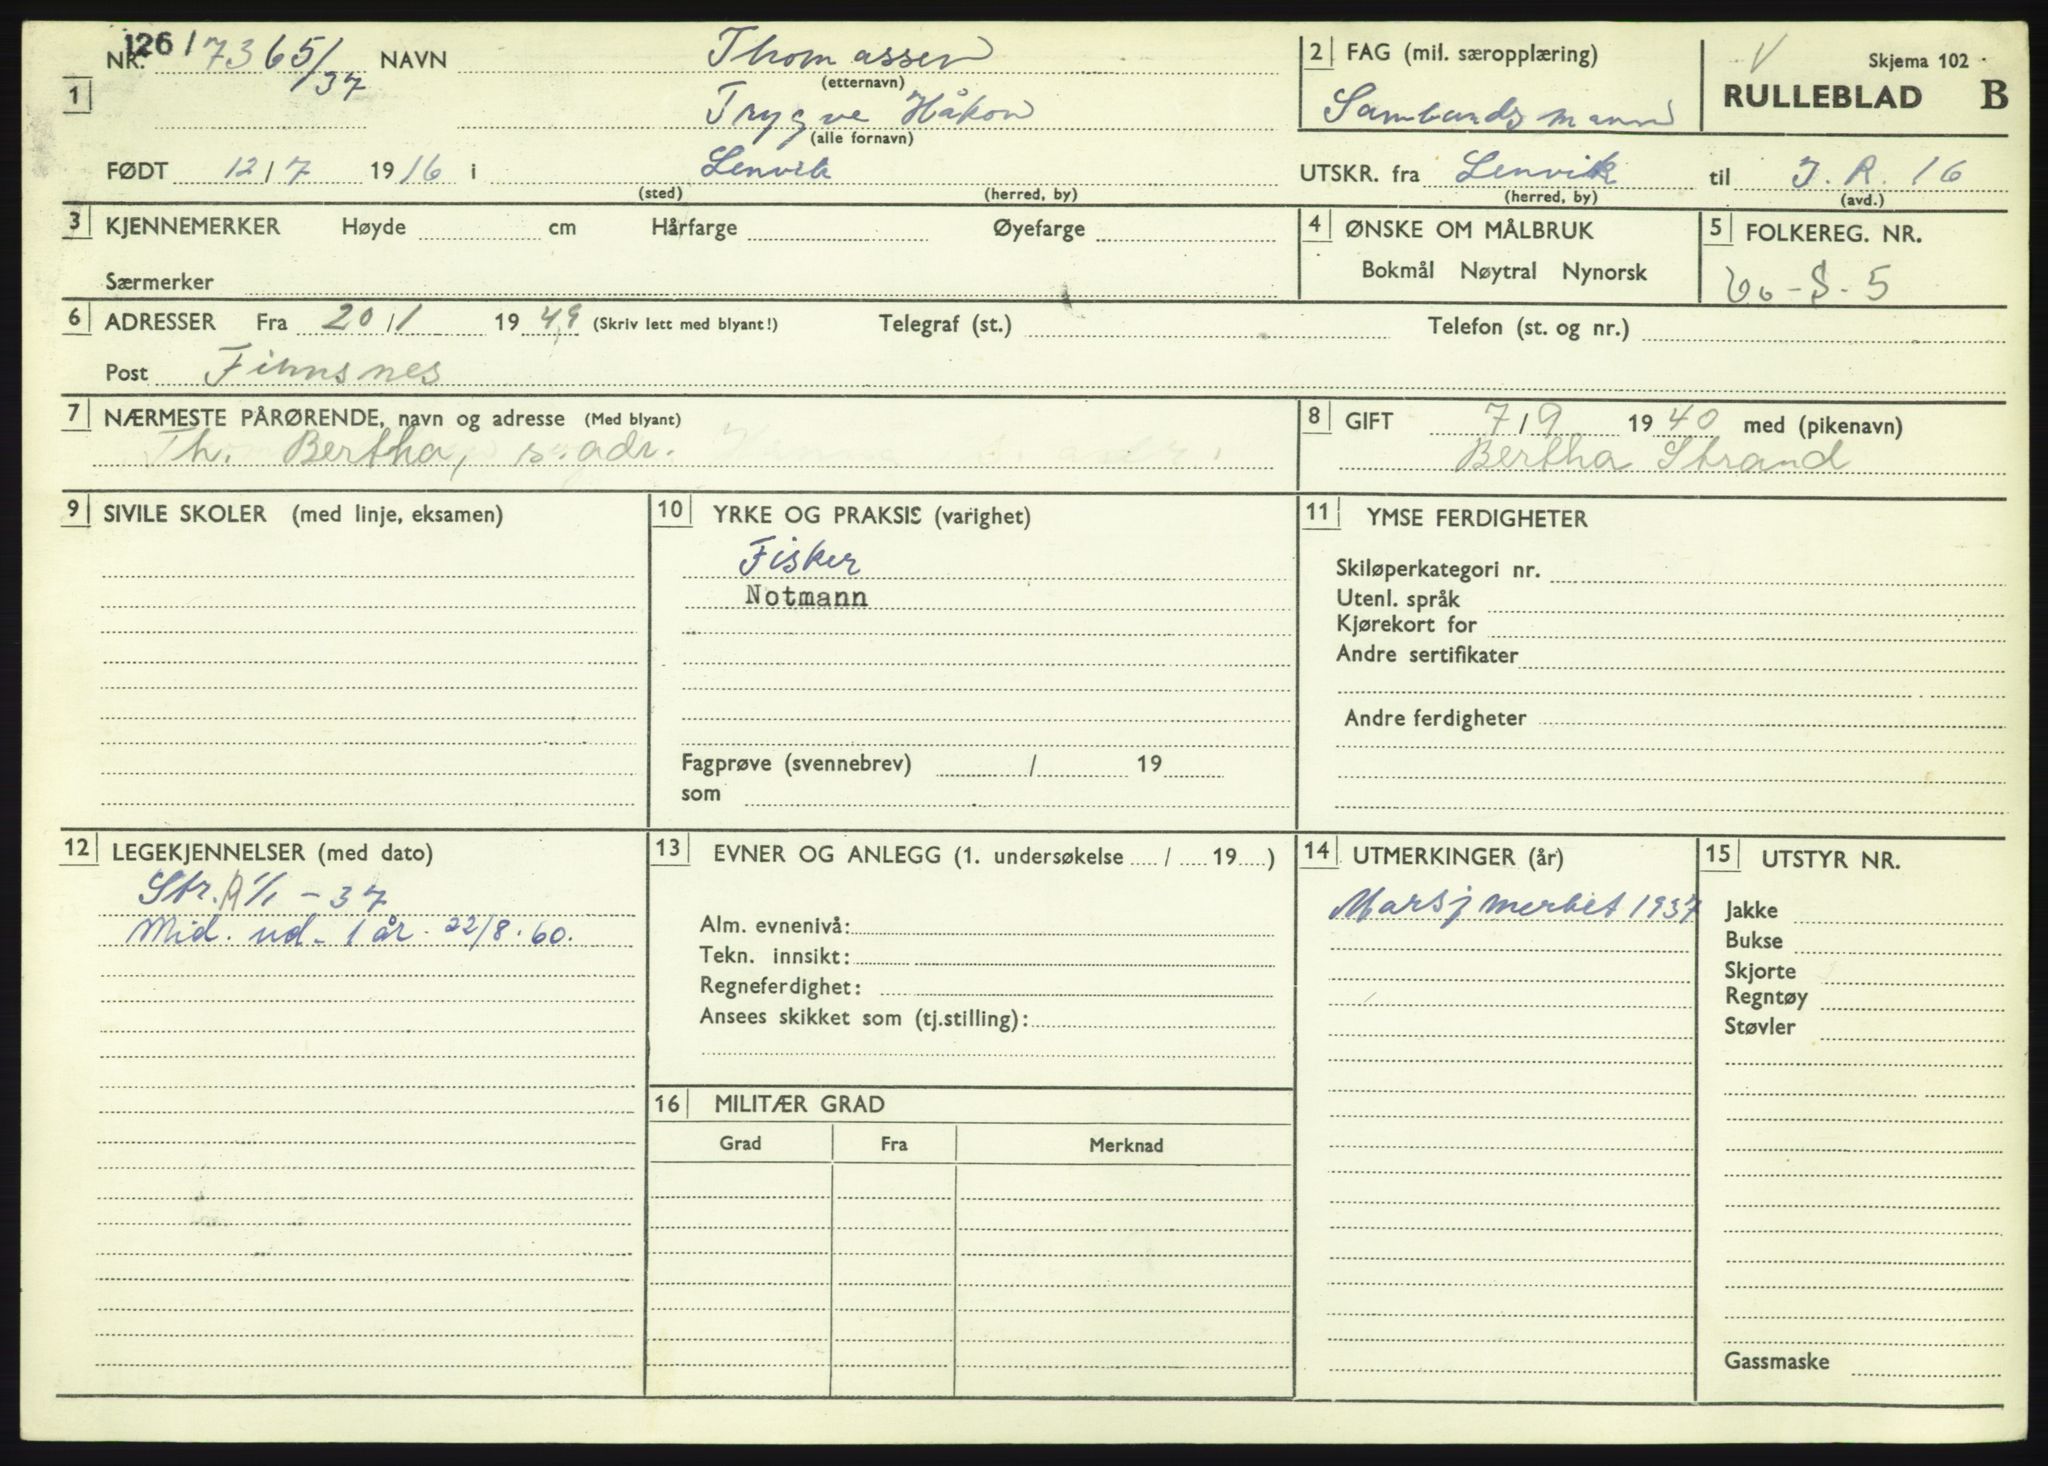 126/7365/37 NR. NAVN Thomassen
(etternavn)
1 Trygve Håkon
(alle fornavn)
FØDT 12/7 1916 i Lenvik
(sted) (herred, by)
2 FAG (mil. særopplæring)
Sambandsmann
V Skjema 102
RULLEBLAD B
UTSKR. fra Lenvik til J. R. 16
(herred, by) (avd.)
3 KJENNEMERKER Høyde cm Hårfarge Øyefarge
Særmerker
4 ØNSKE OM MÅLBRUK
Bokmål Nøytral Nynorsk
5 FOLKEREG. NR.
-8-5
6 ADRESSER Fra 20/1 1949 (Skriv lett med blyant!) Telegraf (st.) Telefon (st. og nr.)
Post Finnsnes
7 NÆRMESTE PÅRØRENDE, navn og adresse (Med blyant)
Th. Bertha, s. adr.
8 GIFT 7/9 1940 med (pikenavn)
Bertha Strand
9 SIVILE SKOLER (med linje, eksamen)
10 YRKE OG PRAKSIS (varighet)
Fisker
Notmann
Fagprøve (svennebrev) / 19
som
11 YMSE FERDIGHETER
Skiløperkategori nr.
Utenl. språk
Kjørekort for
Andre sertifikater
Andre ferdigheter
12 LEGEKJENNELSER (med dato)
Str. A 1/1 - 37
Mid. ud. 1 år. 22/8. 60.
13 EVNER OG ANLEGG (1. undersøkelse / 19 )
Alm. evnenivå:
Tekn. innsikt:
Regneferdighet:
Ansees skikket som (tj.stilling):
14 UTMERKINGER (år)
Marsjmerket 1937
15 UTSTYR NR.
Jakke
Bukse
Skjorte
Regntøy
Støvler
Gassmaske
16 MILITÆR GRAD
Grad Fra Merknad